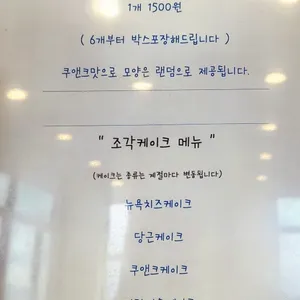 1개 1500원
( 6개부터 박스포장해드립니다 )
쿠앤크맛으로 모양은 랜덤으로 제공됩니다.
" 조각케이크 메뉴 "
(케이크는 종류는 계절마다 변동됩니다)
뉴욕치즈케이크
당근케이크
쿠앤크케이크